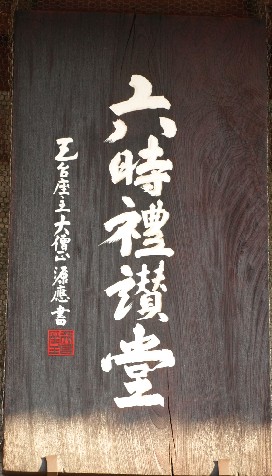 六時禮讃堂
天台座主大僧正源應書